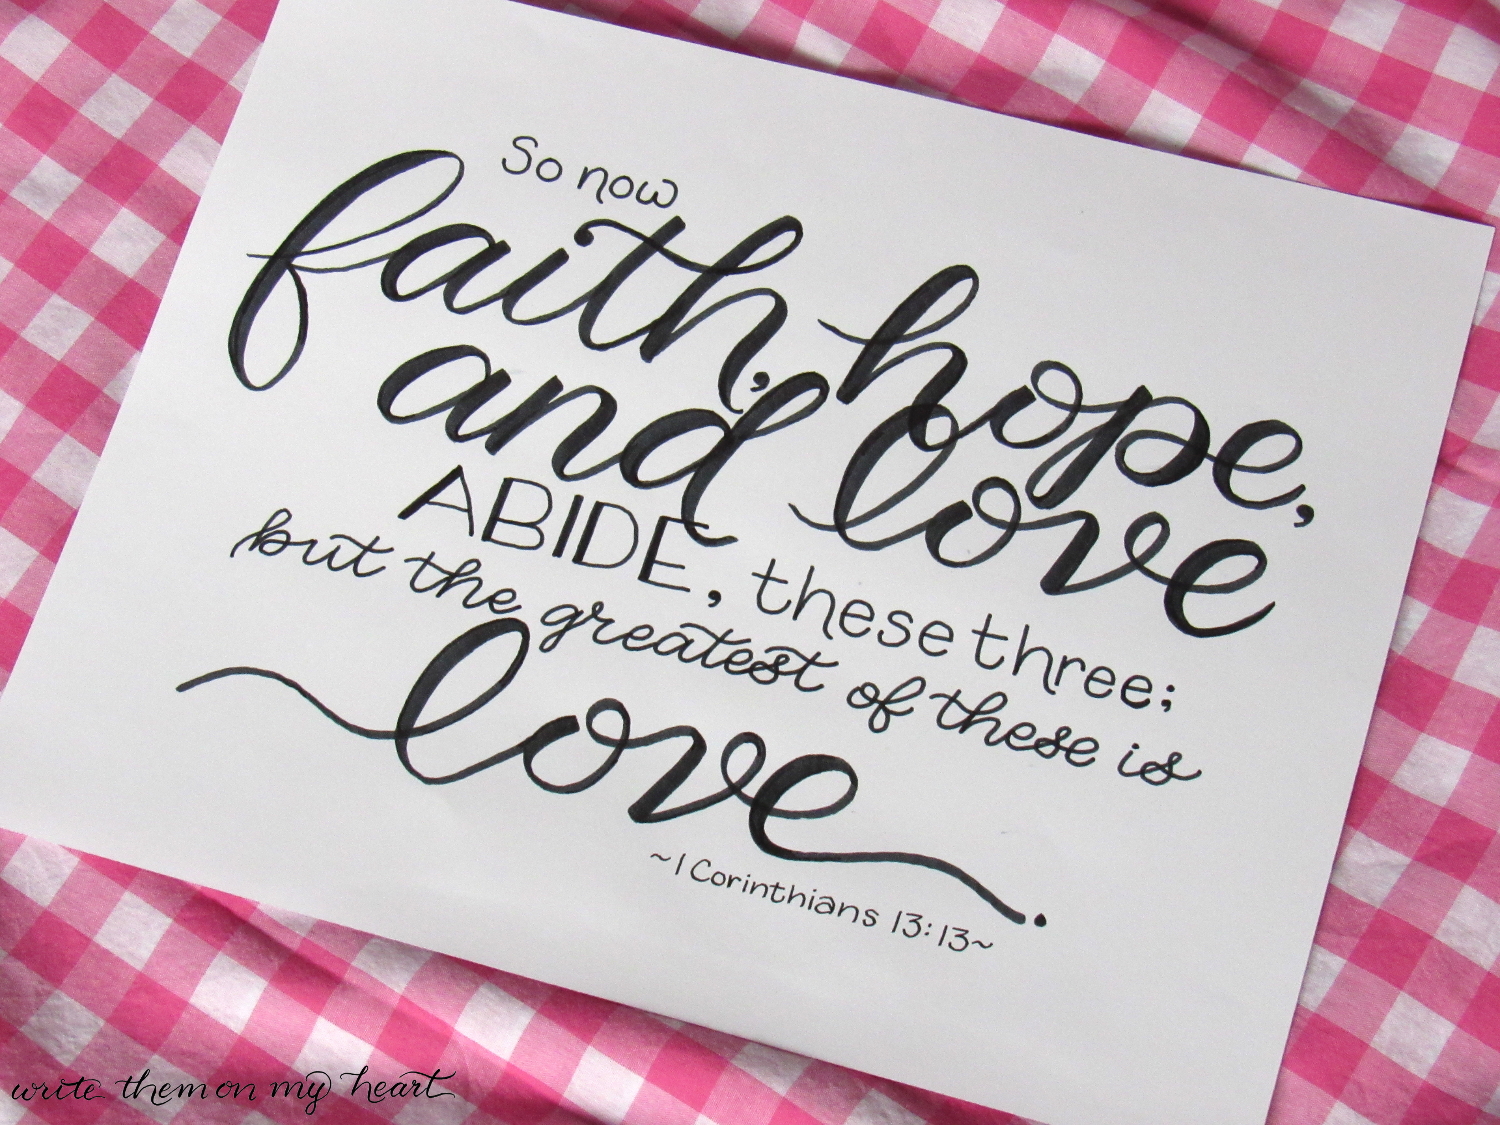 So now
faith, hope,
and love
ABIDE, these three;
but the greatest of these is
love.
~1 Corinthians 13:13~
write them on my heart